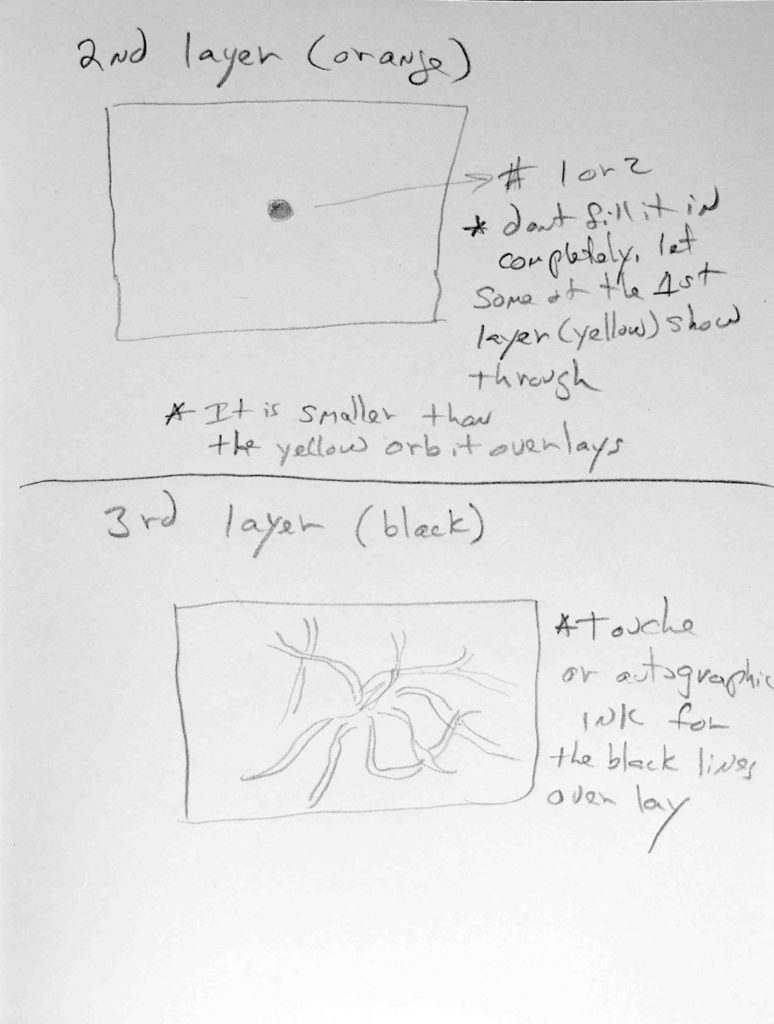 2nd layer (orange)
# 1 or 2
* dont fill it in
completely, let
some of the 1st
layer (yellow) show
through
* It is smaller than
the yellow orb it overlays
3rd layer (black)
* Touche
or autographic
ink for
the black lines
over lay